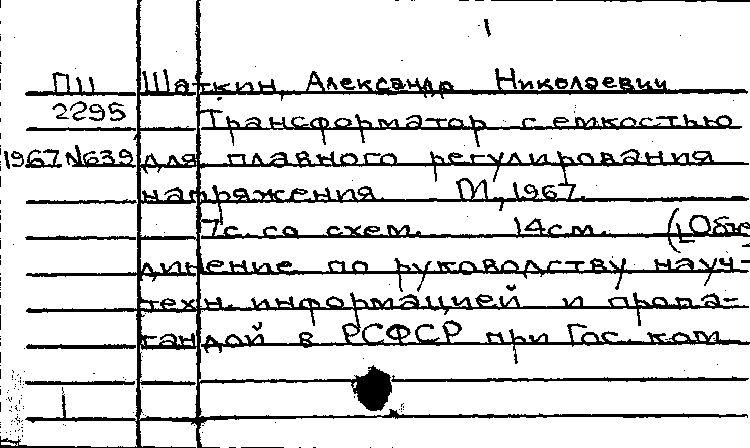 1
ПЦ Шаткин, Александр Николаевич
2295 Трансформатор с емкостью
1967 №639 для плавного регулирования
напряжения. М., 1967.
7с. со схем. 14см. ([Объе
динение по руководству науч-
техн. информацией и пропа-
гандой в РСФСР при Гос. ком.